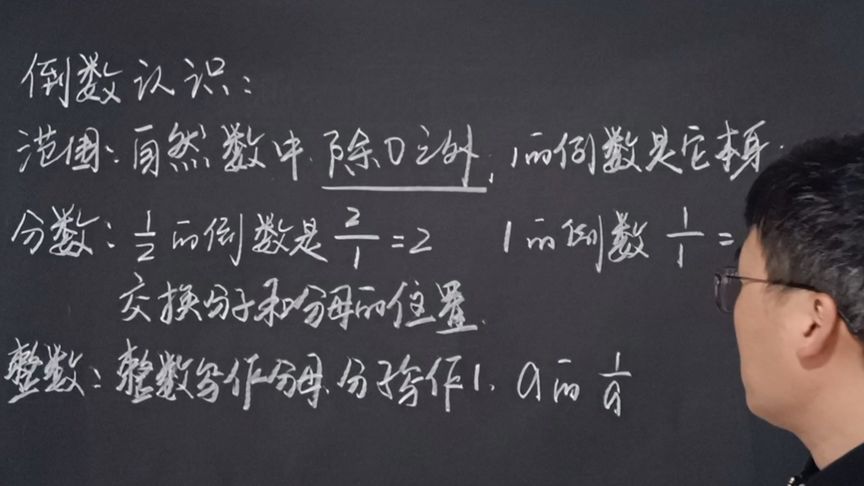 倒数认识：
范围：自然数中，除0之外，1的倒数是它本身.
分数：1/2的倒数是2/1=2 1的倒数1/1=
交换分子和分母的位置.
整数：整数写作分母.分子写作1. a的1/a